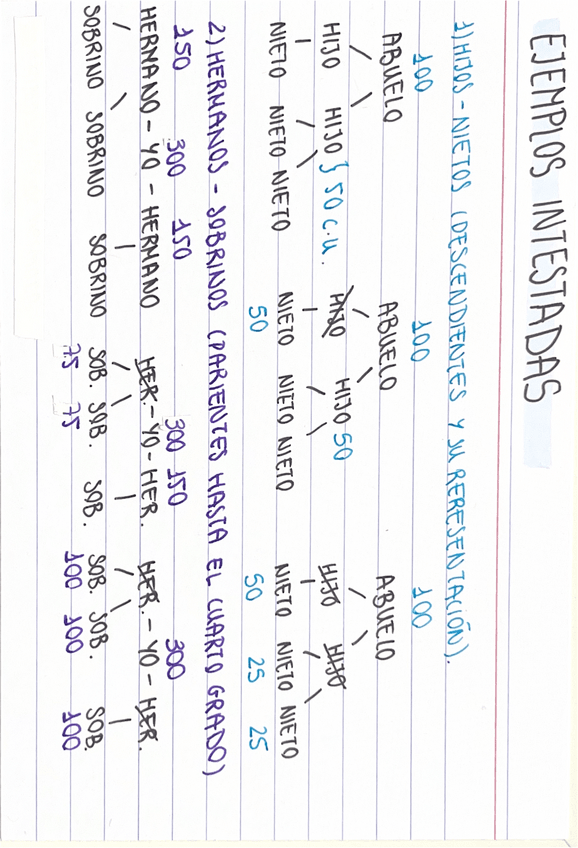 EJEMPLOS INTESTADAS
1) HIJOS - NIETOS (DESCENDIENTES Y SU REPRESENTACIÓN).
100 100 100
ABUELO ABUELO ABUELO
HIJO HIJO } 50 c.u. HIJO HIJO 50 HIJO HIJO
NIETO NIETO NIETO NIETO NIETO NIETO NIETO NIETO NIETO
50 50 25 25
2) HERMANOS - SOBRINOS (PARIENTES HASTA EL CUARTO GRADO)
150 300 150 300 150 300
HERMANO - YO - HERMANO HER. - YO - HER. HER. - YO - HER.
SOBRINO SOBRINO SOBRINO SOB. SOB. SOB. SOB. SOB. SOB.
75 75 100 100 100